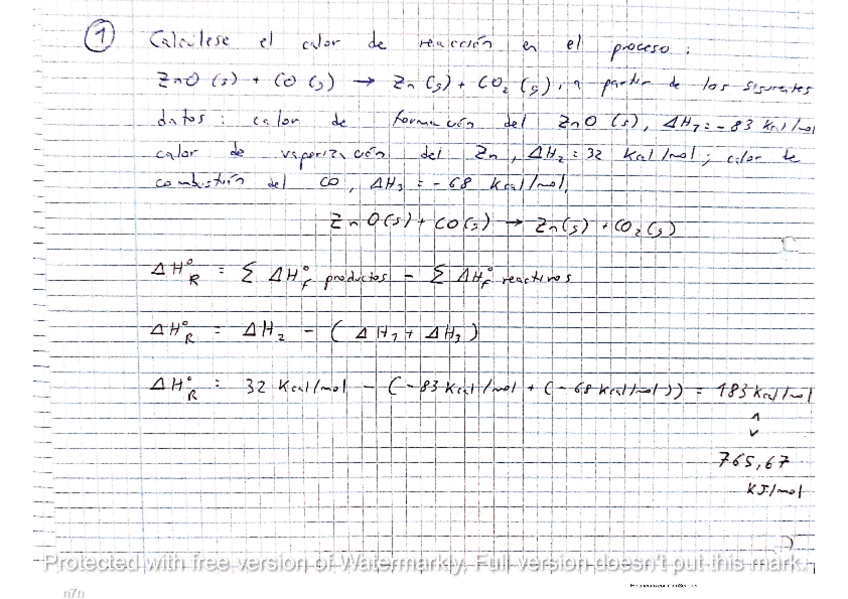 1 Calculese el calor de reacción en el proceso:
ZnO (s) + CO (g) → Zn (g) + CO₂ (g), a partir de los siguientes
datos: calor de formación del ZnO (s), ΔH₁ = -83 Kcal/mol
calor de vaporización del Zn, ΔH₂ = 32 Kcal/mol; calor de
combustión del CO, ΔH₃ = -68 Kcal/mol.
ZnO(s) + CO(g) → Zn(g) + CO₂(g)
ΔH°R = Σ ΔH°f productos - Σ ΔH°f reactivos
ΔH°R = ΔH₂ - (ΔH₁ + ΔH₃)
ΔH°R = 32 Kcal/mol - (-83 Kcal/mol + (-68 Kcal/mol)) = 183 Kcal/mol
765,67
KJ/mol
Protected with free version of Watermarkly. Full version doesn't put this mark.
n7n